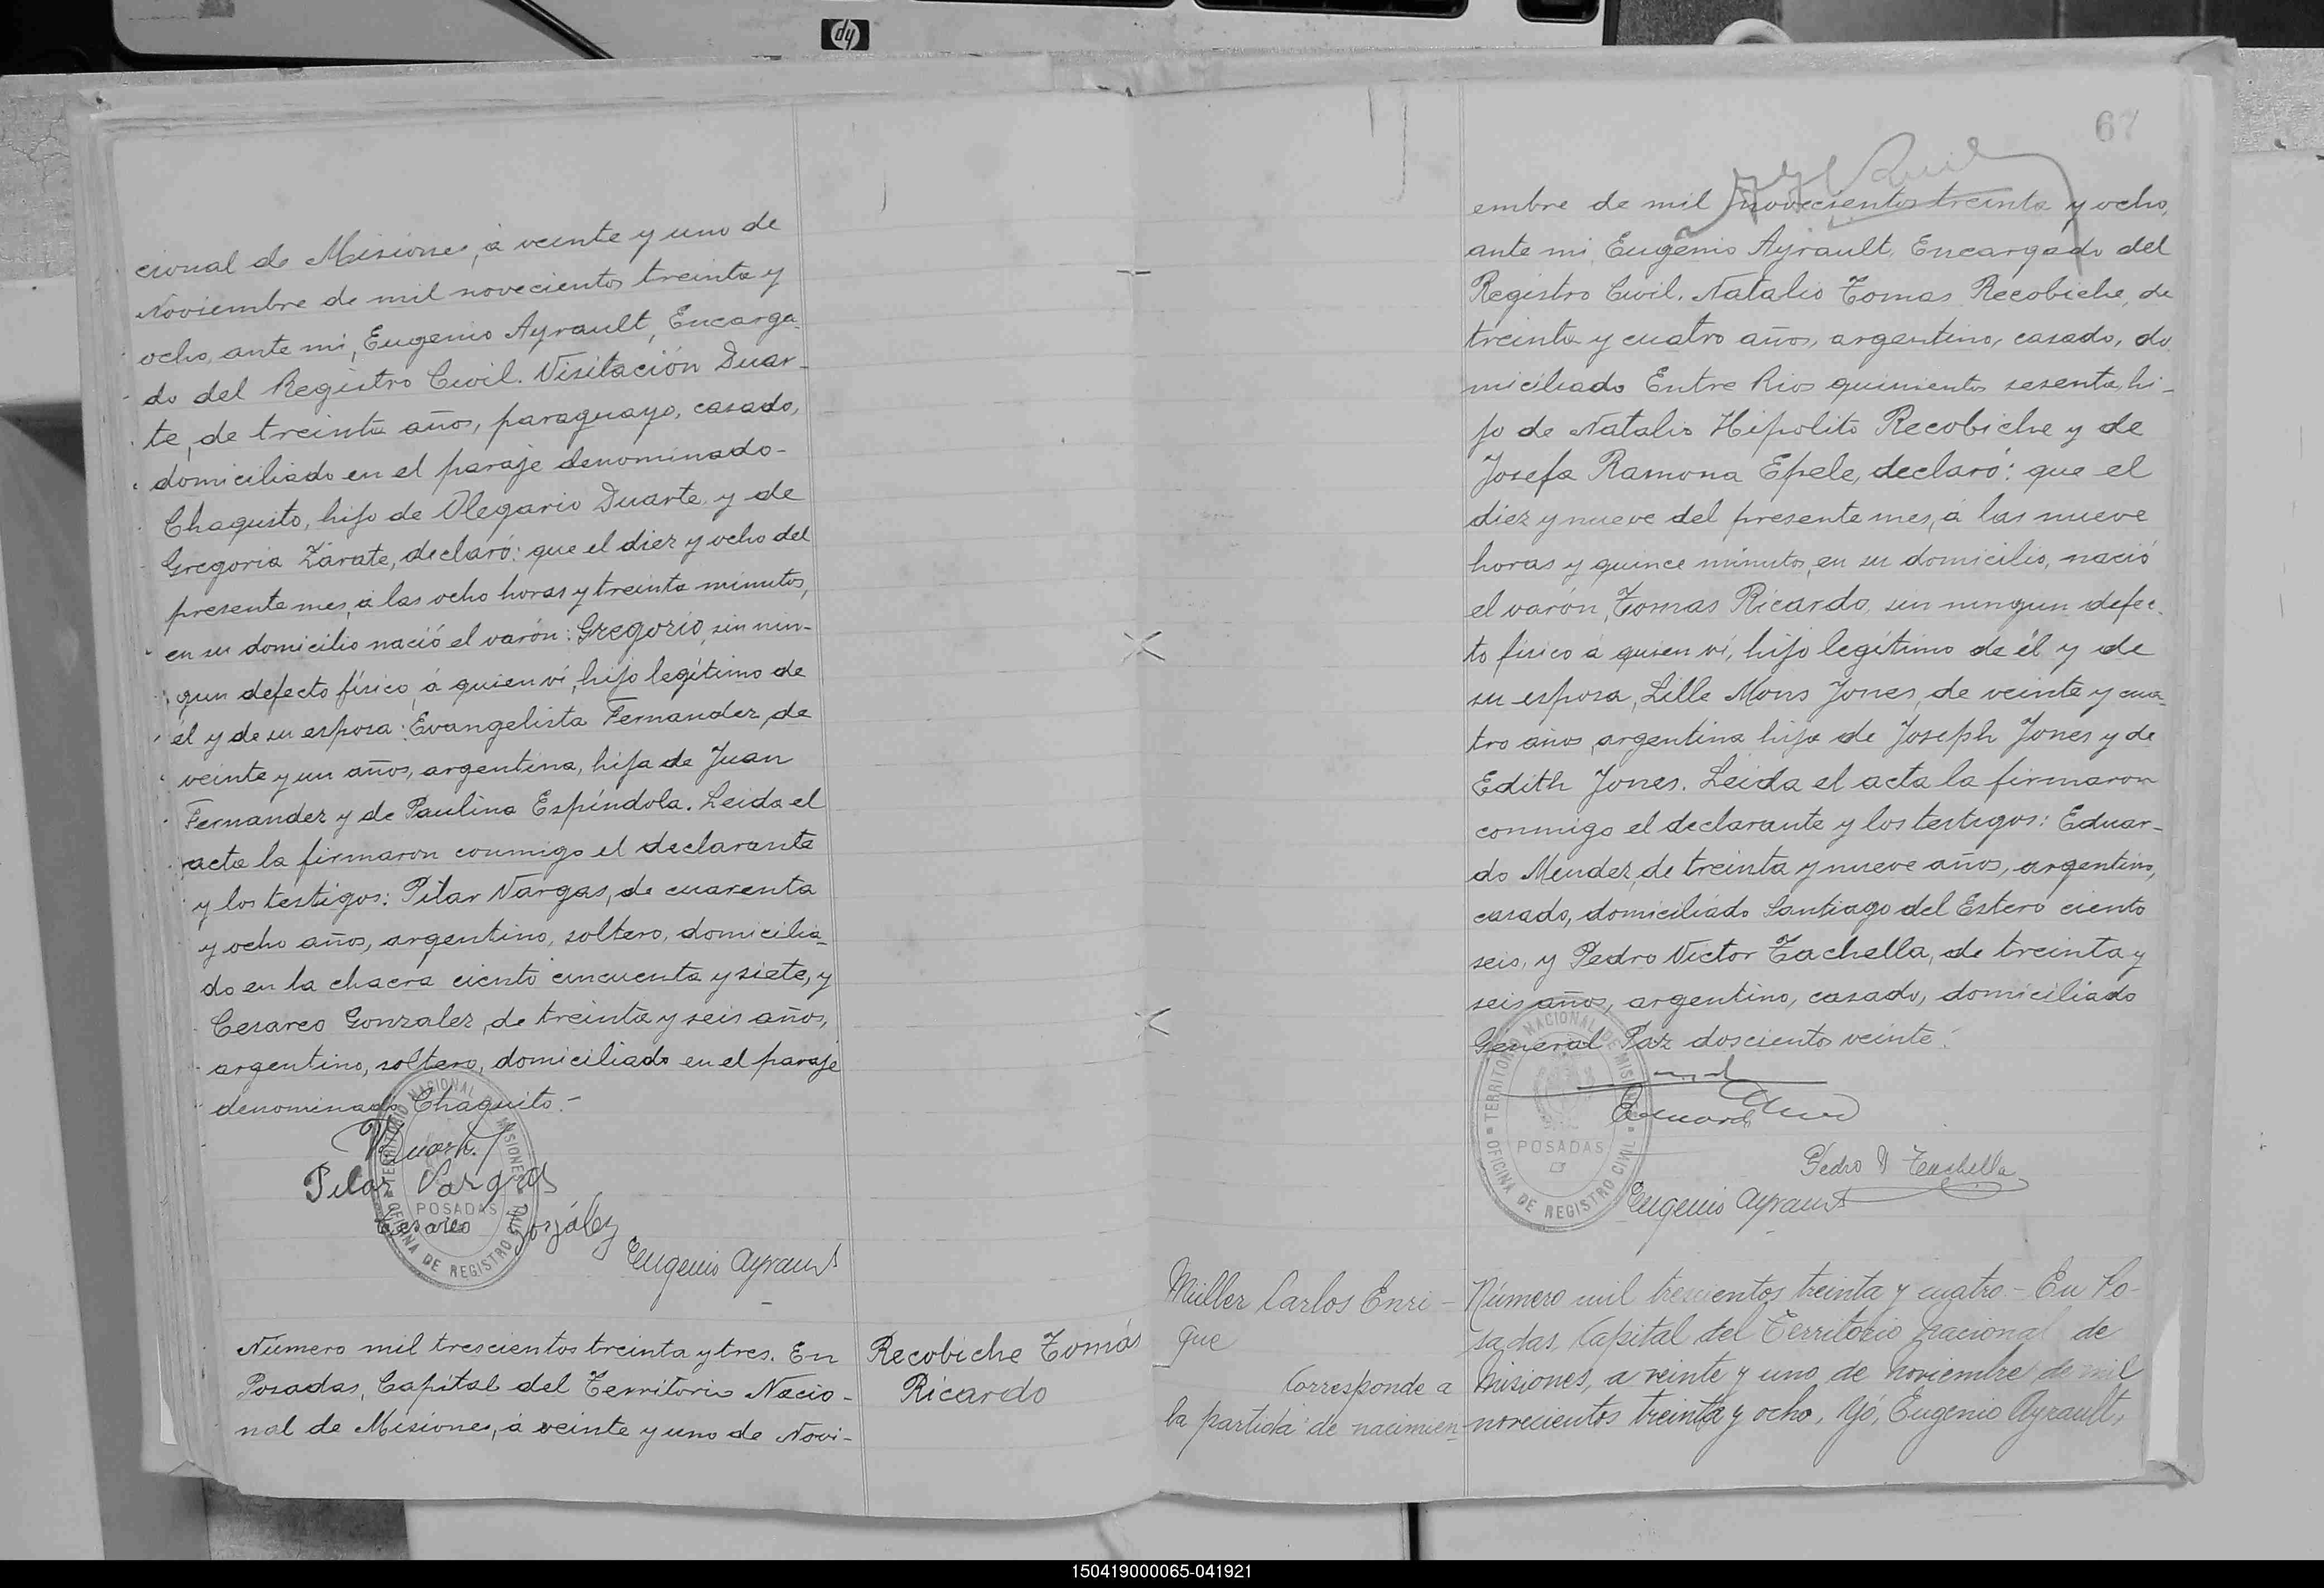 hp
cional de Misiones, á veinte y uno de
Noviembre de mil novecientos treinta y
ocho, ante mi, Eugenio Ayrault, Encarga-
do del Registro Civil. Visitación Duar-
te, de treinta años, paraguayo, casado,
domiciliado en el paraje denominado-
Chaquito, hijo de Olegario Duarte y de
Gregoria Zárate, declaró: que el diez y ocho del
presente mes, á las ocho horas y treinta minutos,
en su domicilio nació el varón: Gregorio, sin nin-
gun defecto físico, á quien ví, hijo legítimo de
él y de su esposa: Evangelista Fernandez, de
veinte y un años, argentina, hija de Juan
Fernandez y de Paulina Espíndola. Leida el
acta la firmaron conmigo el declarante
y los testigos: Pilar Vargas, de cuarenta
y ocho años, argentino, soltero, domicilia-
do en la chacra ciento cincuenta y siete, y
Cesareo Gonzalez, de treinta y seis años,
argentino, soltero, domiciliado en el paraje
denominado Chaquito.-
VDuarte
Pilar Vargas
Cesareo González
Eugenio Ayrault
TERRITORIO NACIONAL DE MISIONES
POSADAS
OFICINA DE REGISTRO CIVIL
Número mil trescientos treinta y tres. En
Posadas, Capital del Territorio Nacio-
nal de Misiones, á veinte y uno de Novi-
Recobiche Tomás
Ricardo
67
embre de mil novecientos treinta y ocho,
ante mi, Eugenio Ayrault, Encargado del
Registro Civil. Natalio Tomas Recobiche, de
treinta y cuatro años, argentino, casado, do
miciliado Entre Rios quinientos sesenta, hi-
jo de Natalio Hipolito Recobiche y de
Josefa Ramona Epele, declaró: que el
diez y nueve del presente mes, á las nueve
horas y quince minutos, en su domicilio, nació
el varón, Tomas Ricardo, sin ningun defec-
to físico á quien ví, hijo legítimo de él y de
su esposa, Lille Mons Jones, de veinte y cua-
tro años, argentina hija de Joseph Jones y de
Edith Jones. Leida el acta la firmaron
conmigo el declarante y los testigos: Eduar-
do Mendez, de treinta y nueve años, argentino,
casado, domiciliado Santiago del Estero ciento
seis, y Pedro Victor Tachella, de treinta y
seis años, argentino, casado, domiciliado
General Paz doscientos veinte.
Pedro V Tachella
Eugenio Ayrault
TERRITORIO NACIONAL DE MISIONES
POSADAS
OFICINA DE REGISTRO CIVIL
Müller Carlos Enri-
que
Corresponde a
la partida de nacimien-
Número mil trescientos treinta y cuatro.- En Po-
sadas, Capital del Territorio Nacional de
Misiones, a veinte y uno de Noviembre de mil
novecientos treinta y ocho, Yó, Eugenio Ayrault,
150419000065-041921